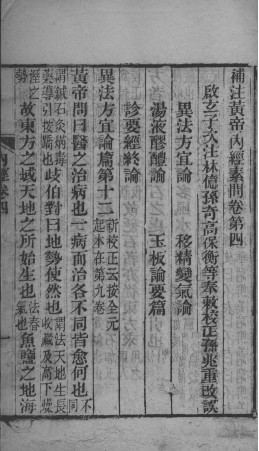 補注黃帝內經素問卷第四
啟玄子次注林億孫奇高保衡等奉敕校正孫兆重改誤
異法方宜論　移精變氣論
湯液醪醴論　玉板論要篇
診要經終論
異法方宜論篇第十二新校正云按全元起本在第九卷
黃帝問曰醫之治病也一病而治各不同皆愈何也不同謂鍼石灸焫毒藥導引按蹻也
岐伯對曰地勢使然也謂法天地生長收藏及高下燥濕之勢
故東方之域天地之所始生也法春氣也魚鹽之地海
內經卷四